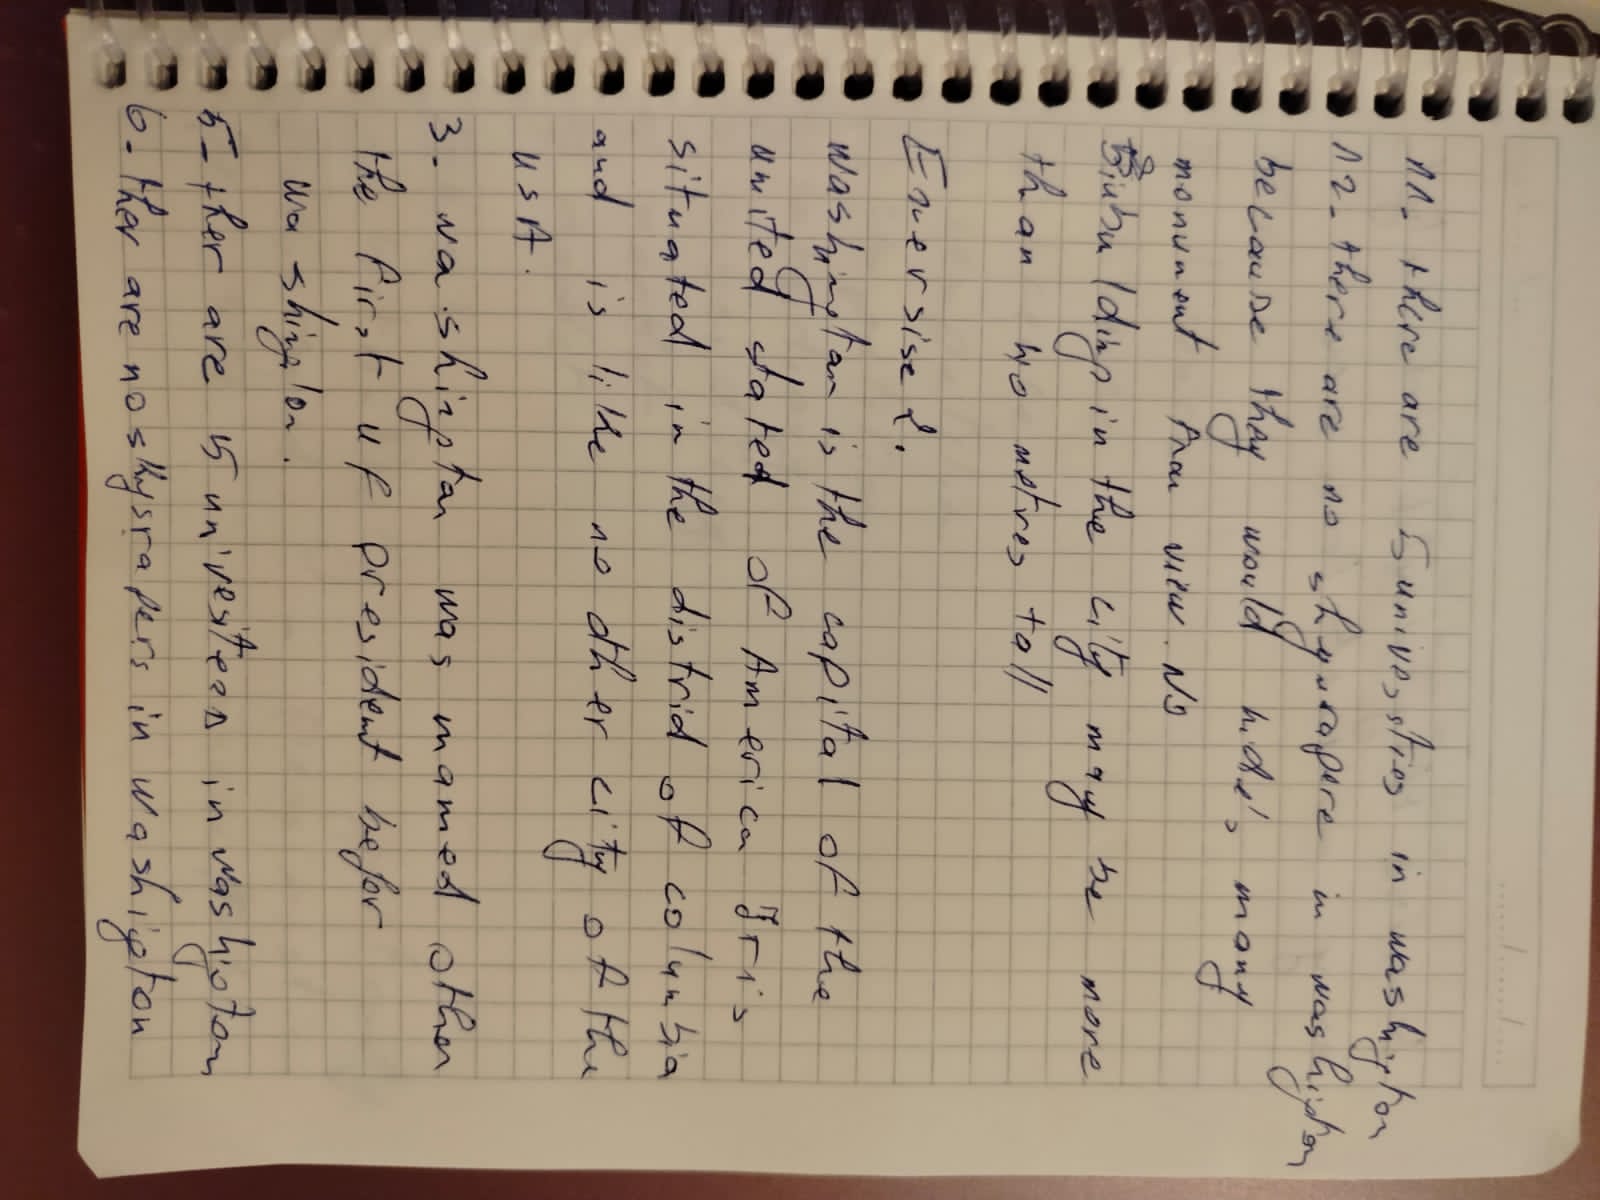 11- there are 5 univessties in washigton
12- there are no skysrapere in washigton
because they would hide, many
monument from view. No
Buildings in the city may be more
than 40 metres tall
Exersise 2.
washington is the capital of the
united stated of America It is
situated in the distrid of columbia
and is like no other city of the
USA.
3- washigton was named other
the first uf president befor
washington.
5- ther are 5 univesitees in washigton
6- ther are no skysrapers in washigton